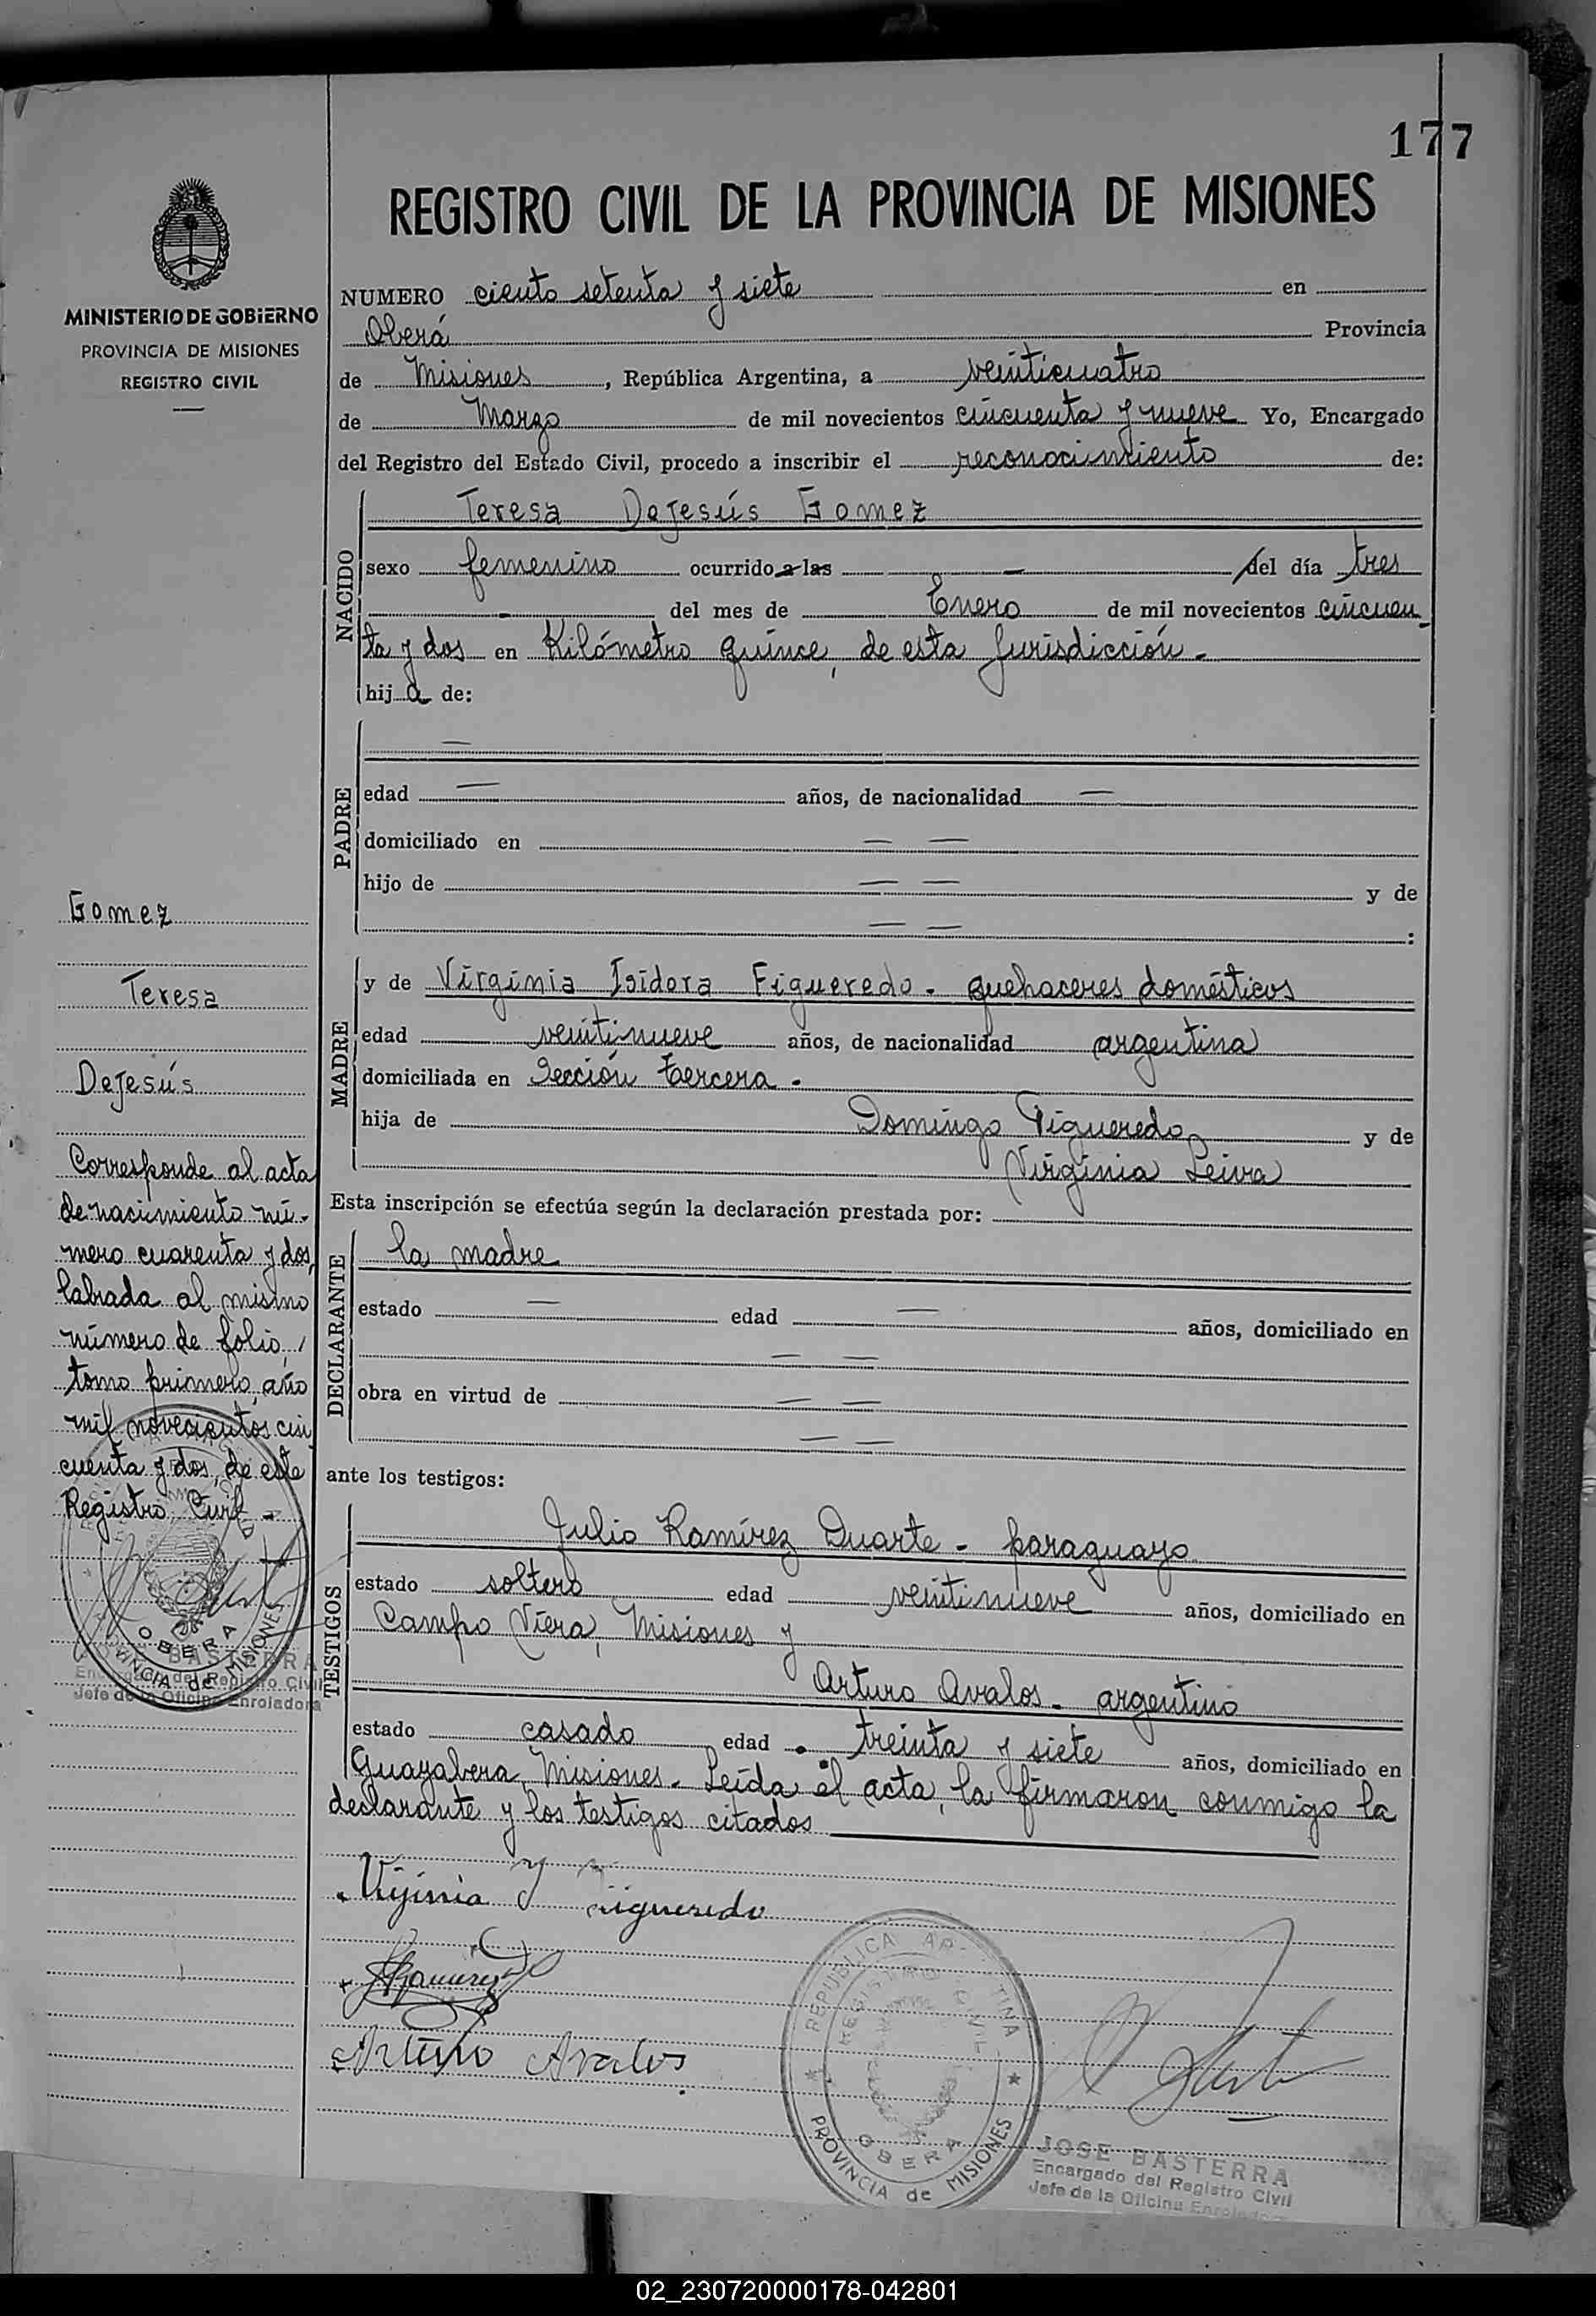 177
REGISTRO CIVIL DE LA PROVINCIA DE MISIONES
MINISTERIO DE GOBIERNO
PROVINCIA DE MISIONES
REGISTRO CIVIL
NUMERO ciento setenta y siete en
Oberá Provincia
de Misiones, República Argentina, a veinticuatro
de Marzo de mil novecientos cincuenta y nueve Yo, Encargado
del Registro del Estado Civil, procedo a inscribir el reconocimiento de:
NACIDO
Teresa DeJesús Gomez
sexo femenino ocurrido a las - del día tres
- del mes de Enero de mil novecientos cincuen-
ta y dos en Kilómetro quince, de esta Jurisdicción.-
hija de:
PADRE
—
edad — años, de nacionalidad —
domiciliado en — —
hijo de — — y de
— — :
MADRE
y de Virginia Isidora Figueredo - quehaceres domésticos
edad veintinueve años, de nacionalidad argentina
domiciliada en Sección tercera.
hija de Domingo Figueredo y de
Virginia Leiva
Esta inscripción se efectúa según la declaración prestada por:
DECLARANTE
la madre
estado — edad — años, domiciliado en
— —
obra en virtud de — —
— —
ante los testigos:
TESTIGOS
Julio Ramírez Duarte - paraguayo
estado soltero edad veintinueve años, domiciliado en
Campo Viera, Misiones y
Arturo Avalos - argentino
estado casado edad treinta y siete años, domiciliado en
Guayabera, Misiones. Leída el acta, la firmaron conmigo la
declarante y los testigos citados
Virjinia Y Figueredo
Ramirez
Arturo Avalos
REPUBLICA ARGENTINA
REGISTRO CIVIL
OBERA
PROVINCIA de MISIONES
JOSE BASTERRA
Encargado del Registro Civil
Jefe de la Oficina Enroladora
Gomez
Teresa
DeJesús
Corresponde al acta
de nacimiento nú-
mero cuarenta y dos,
labrada al mismo
número de folio,
tomo primero, año
mil novecientos cin
cuenta y dos, de este
Registro Civil -
OBERA
PROVINCIA de MISIONES
BASTERRA
Encargado del Registro Civil
Jefe de la Oficina Enroladora
02_230720000178-042801